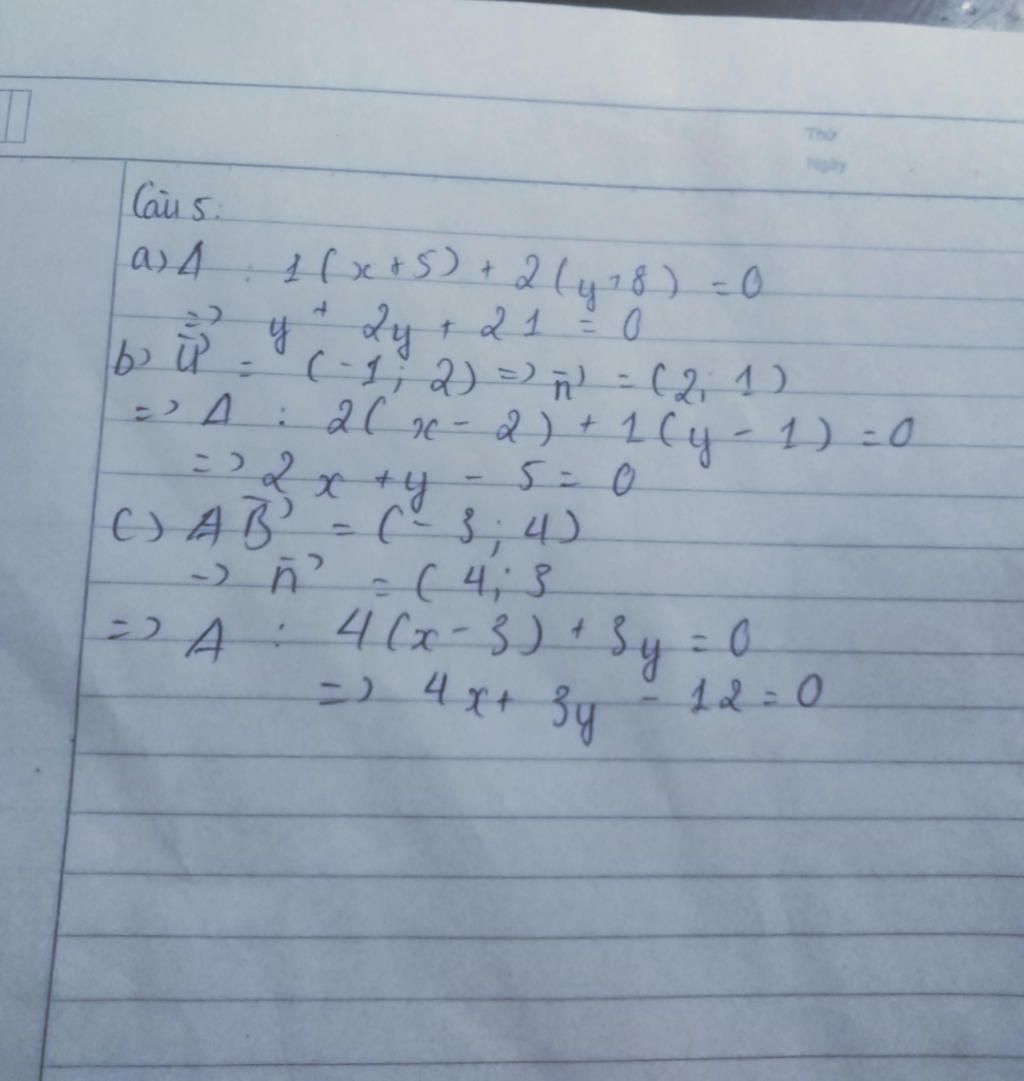 Thứ
Ngày
Câu 5:
a) Δ : 1(x + 5) + 2(y + 8) = 0
=> y + 2y + 21 = 0
b) u⃗ = (-1; 2) => n⃗ = (2; 1)
=> Δ : 2(x - 2) + 1(y - 1) = 0
=> 2x + y - 5 = 0
c) AB⃗ = (-3; 4)
-> n⃗ = (4; 3
=> Δ : 4(x - 3) + 3y = 0
=> 4x + 3y - 12 = 0